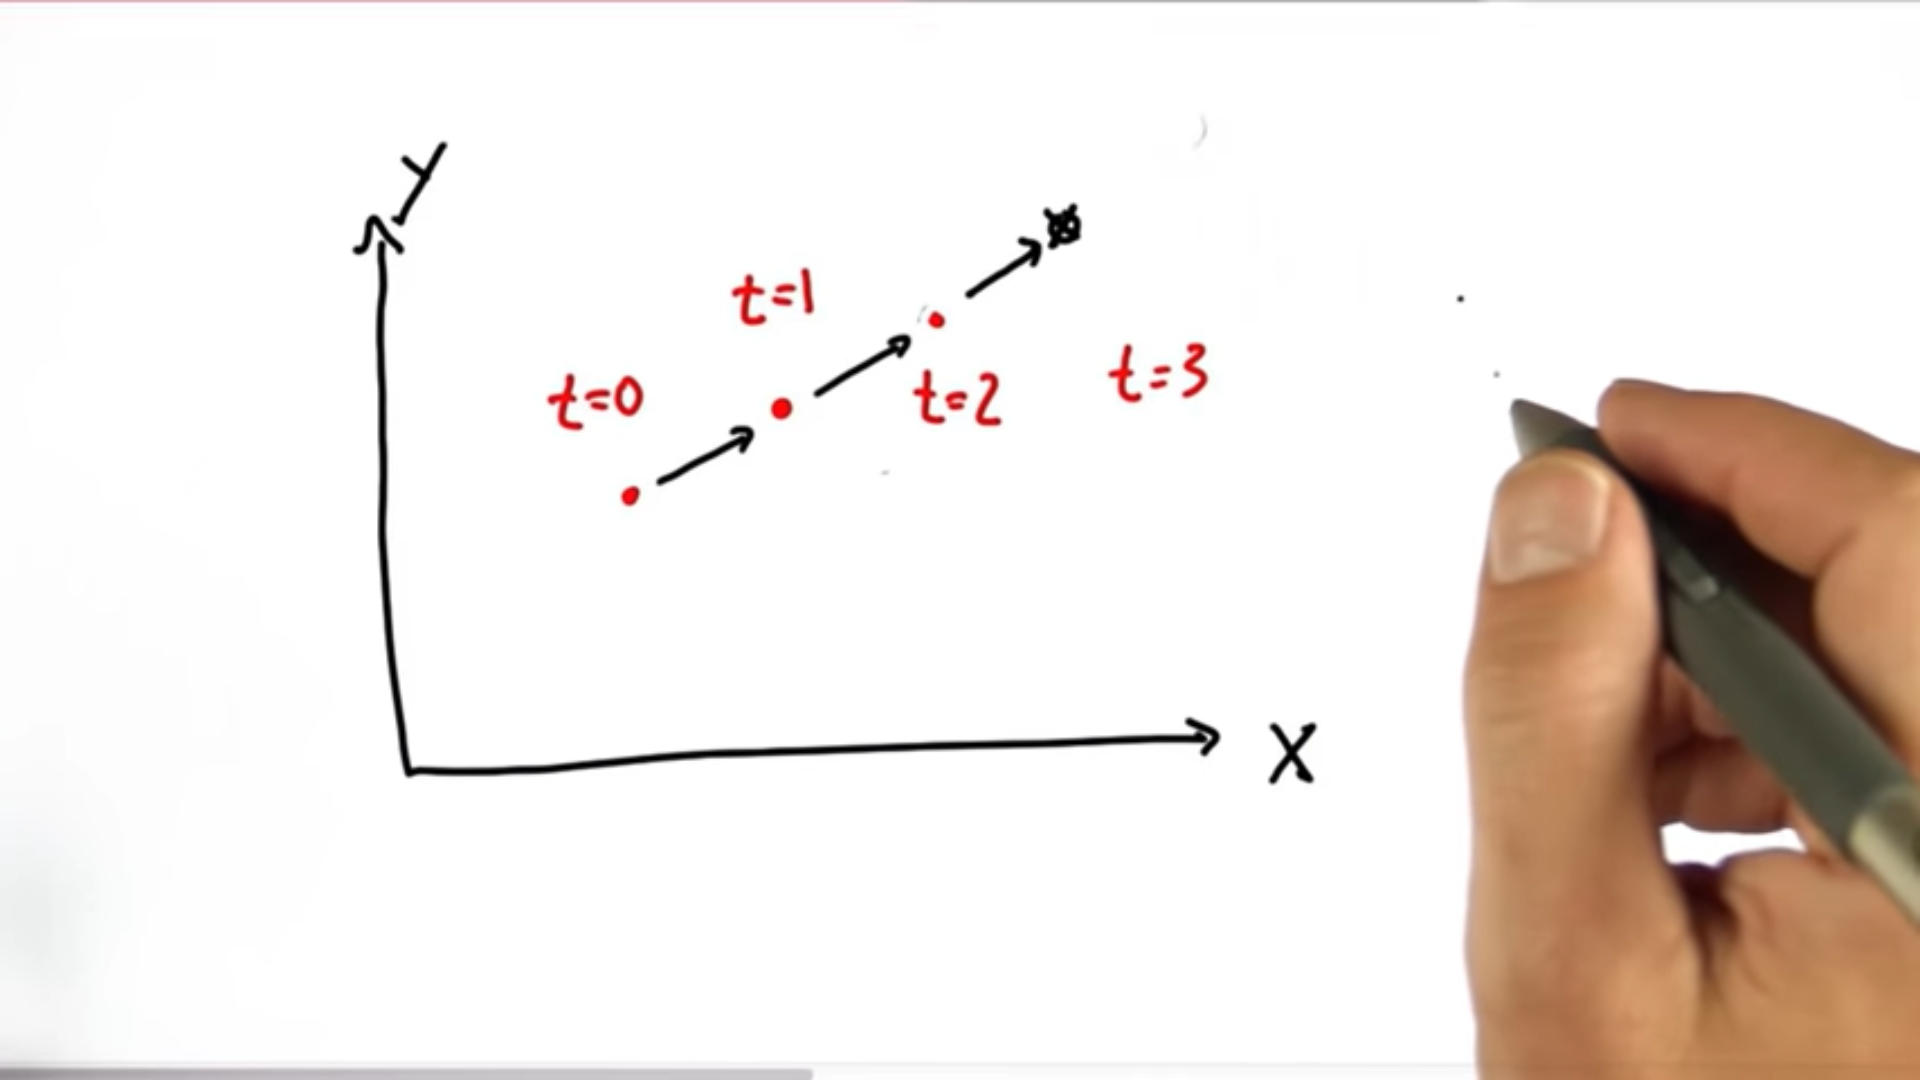 Y
t=1
t=0
t=2
t=3
X